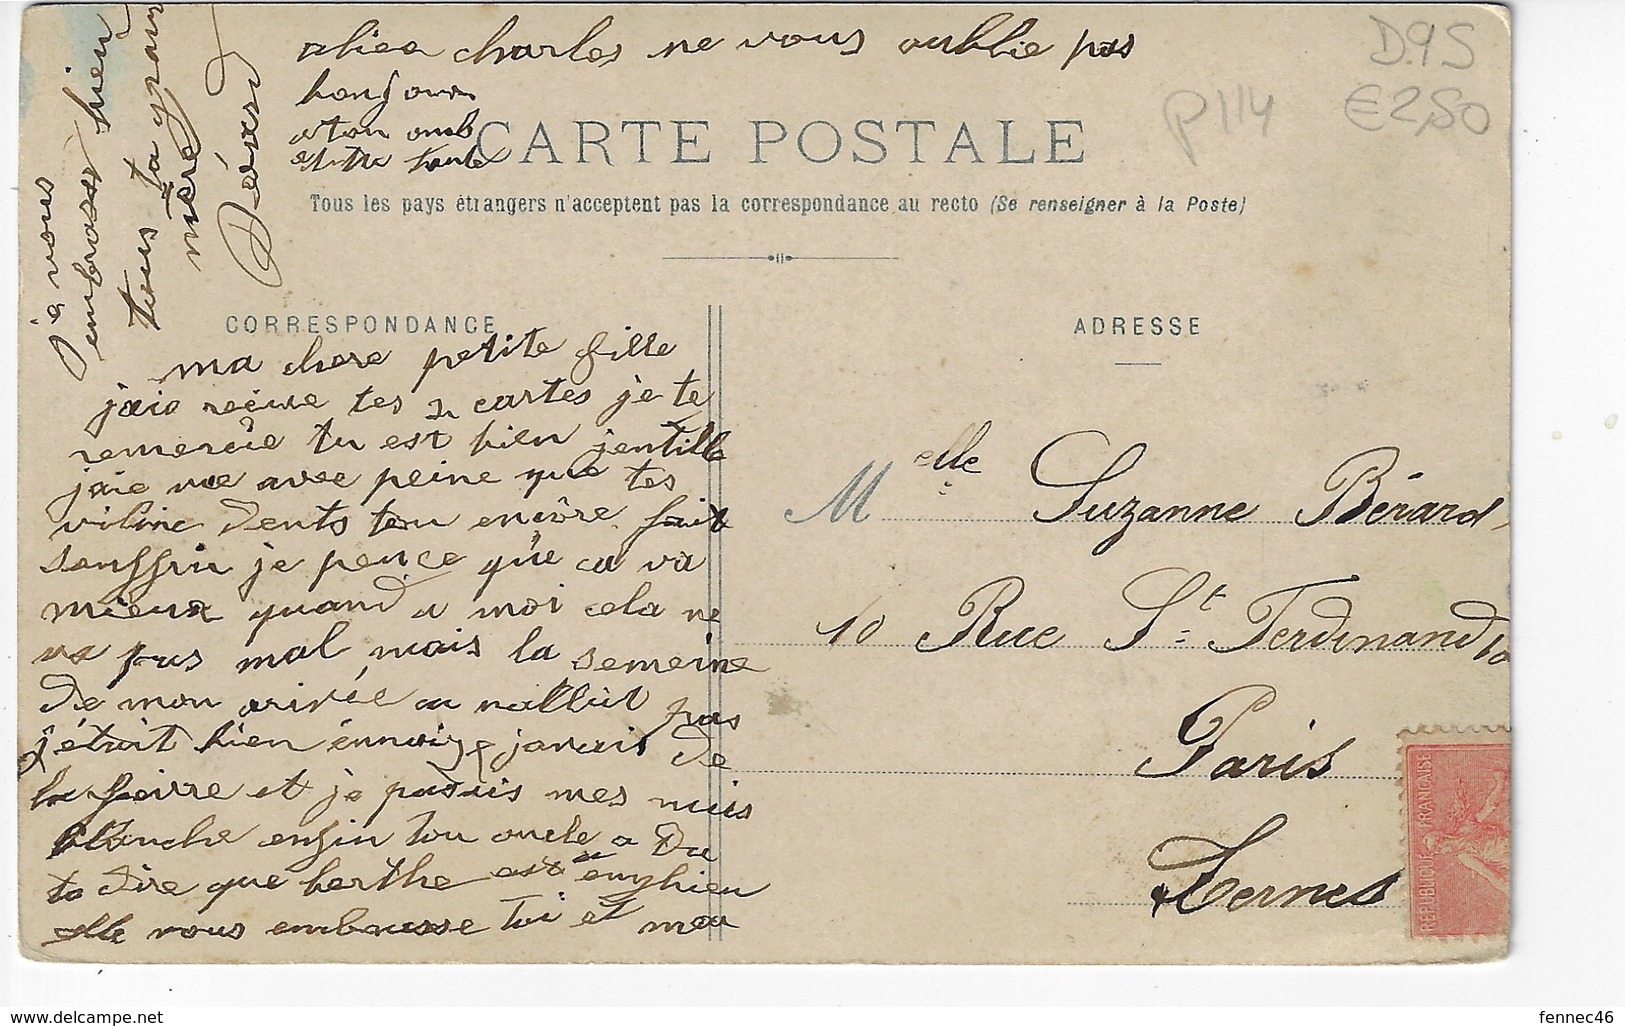 charles ne vous oublie pas
bonjour
a ton oncle
et ta tante
D.95
€2,50
p114
CARTE POSTALE
Tous les pays étrangers n'acceptent pas la correspondance au recto (Se renseigner à la Poste)
CORRESPONDANCE
ma chere petite fille
jaie reçiue tes 2 cartes je te
remercie tu est bien jentille
jaie vue avec peine que tes
viline dents ton encôre fait
souffrir je pence que ca va
mieux quand a moi cela ne
va pas mal mais la semeine
de mon arivée
pas
j'étrait bien ennuiye javais de
la fieivre et je pasais mes nuis
blanche enfin ton oncle a du
te dire que berthe est a enghien
elle vous embrasse toi et
je vous
embrasse bien
tous ta grand
mere
Bérard
ADRESSE
Melle Suzanne Bérard
10 Rue St Ferdinand 10
Paris
Ternes
REPUBLIQUE FRANCAISE
fennec46